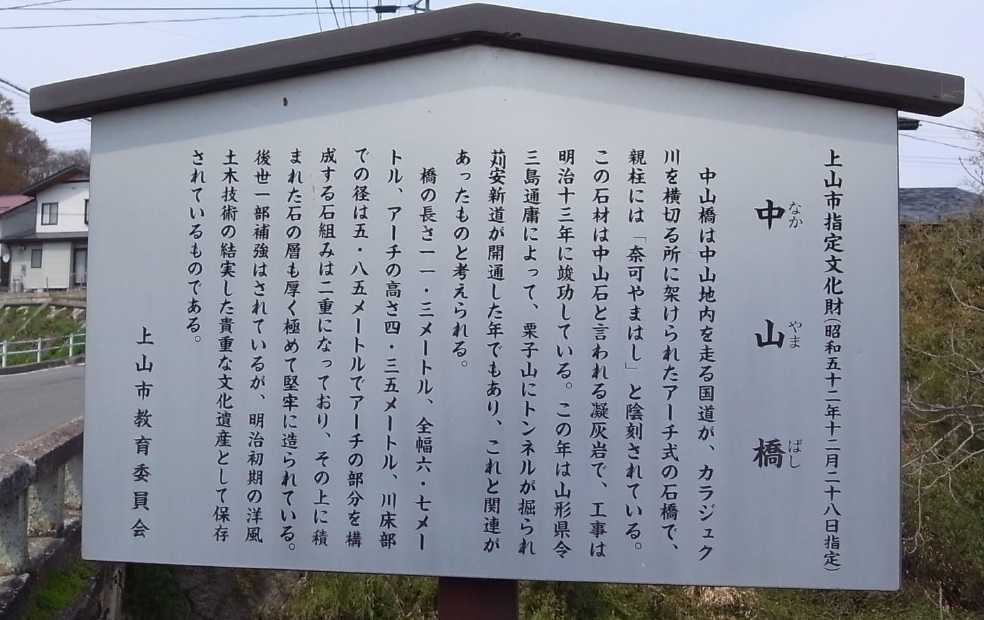 上山市指定文化財(昭和五十二年十二月二十八日指定)
中山橋
なか やま ばし
中山橋は中山地内を走る国道が、カラジェク
川を横切る所に架けられたアーチ式の石橋で、
親柱には「奈可やまはし」と陰刻されている。
この石材は中山石と言われる凝灰岩で、工事は
明治十三年に竣功している。この年は山形県令
三島通庸によって、栗子山にトンネルが掘られ
苅安新道が開通した年でもあり、これと関連が
あったものと考えられる。
橋の長さ一一・三メートル、全幅六・七メー
トル、アーチの高さ四・三五メートル、川床部
での径は五・八五メートルでアーチの部分を構
成する石組みは二重になっており、その上に積
まれた石の層も厚く極めて堅牢に造られている。
後世一部補強はされているが、明治初期の洋風
土木技術の結実した貴重な文化遺産として保存
されているものである。
上山市教育委員会